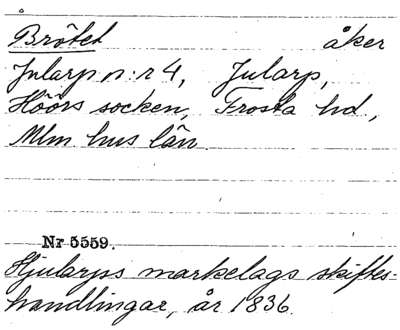 Brötet åker
Jularp n:r 4, Jularp,
Höörs socken, Frosta hd,
Mlm. hus län.
Nr 5559.
Hjularps markelags skiftes-
handlingar, år 1836.